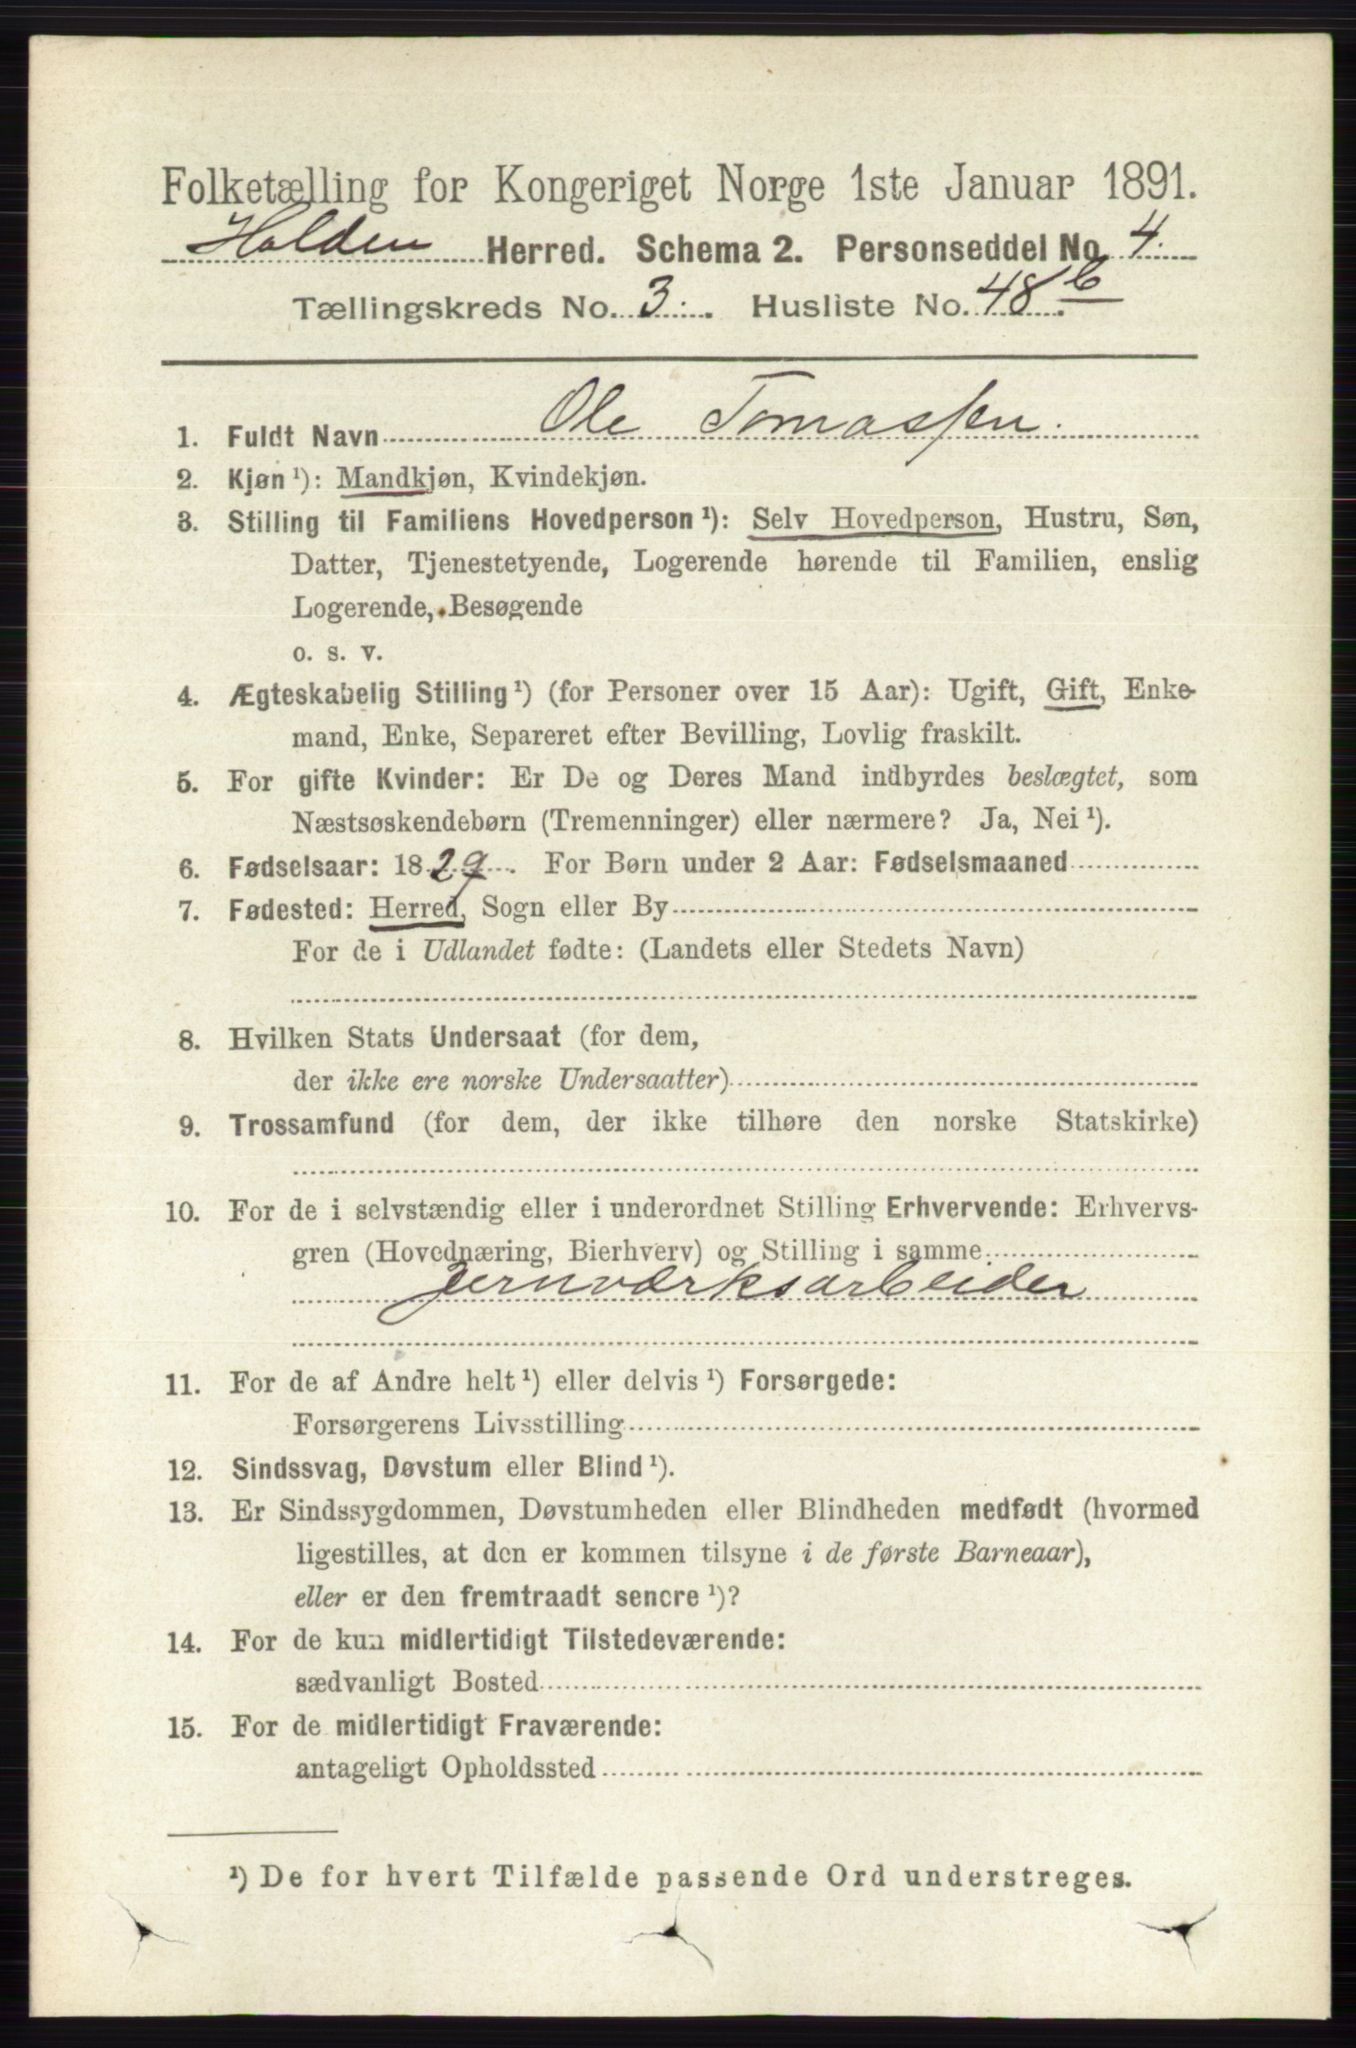 Folketælling for Kongeriget Norge 1ste Januar 1891.
Holden Herred. Schema 2. Personseddel No. 4.
Tællingskreds No. 3. Husliste No. 48.b
1. Fuldt Navn Ole Tomassen.
2. Kjøn ¹): Mandkjøn, Kvindekjøn.
3. Stilling til Familiens Hovedperson ¹): Selv Hovedperson, Hustru, Søn,
Datter, Tjenestetyende, Logerende hørende til Familien, enslig
Logerende, Besøgende
o. s. v.
4. Ægteskabelig Stilling ¹) (for Personer over 15 Aar): Ugift, Gift, Enke-
mand, Enke, Separeret efter Bevilling, Lovlig fraskilt.
5. For gifte Kvinder: Er De og Deres Mand indbyrdes beslægtet, som
Næstsøskendebørn (Tremenninger) eller nærmere? Ja, Nei ¹).
6. Fødselsaar: 1829. For Børn under 2 Aar: Fødselsmaaned
7. Fødested: Herred, Sogn eller By
For de i Udlandet fødte: (Landets eller Stedets Navn)
8. Hvilken Stats Undersaat (for dem,
der ikke ere norske Undersaatter)
9. Trossamfund (for dem, der ikke tilhøre den norske Statskirke)
10. For de i selvstændig eller i underordnet Stilling Erhvervende: Erhvervs-
gren (Hovednæring, Bierhverv) og Stilling i samme
Jernværksarbeider
11. For de af Andre helt ¹) eller delvis ¹) Forsørgede:
Forsørgerens Livsstilling
12. Sindssvag, Døvstum eller Blind ¹).
13. Er Sindssygdommen, Døvstumheden eller Blindheden medfødt (hvormed
ligestilles, at den er kommen tilsyne i de første Barneaar),
eller er den fremtraadt senere ¹)?
14. For de kun midlertidigt Tilstedeværende:
sædvanligt Bosted
15. For de midlertidigt Fraværende:
antageligt Opholdssted
¹) De for hvert Tilfælde passende Ord understreges.